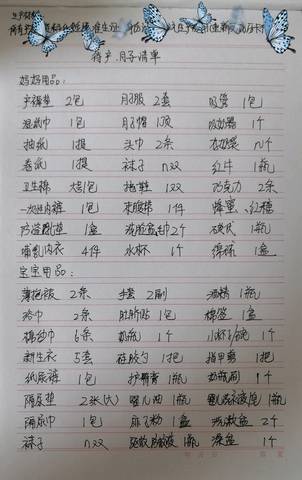 待产、月子清单
妈妈用品:
产褥垫 2包 月子服 2套 吸管 1包
湿纸巾 1包 月子帽 1顶 吸奶器 1个
抽纸 1提 头巾 2条
卷纸 1提 袜子 n双 红牛 1瓶
卫生棉 大包1包 拖鞋 1双 巧克力 2条
一次性内裤 1包 束腹带 1件 蜂蜜、红糖
防溢乳垫 1盒 2个 1瓶
哺乳内衣 4件 水杯 1个 棉球 1盒
宝宝用品:
薄抱被 2条 手套 2副 酒精 1瓶
浴巾 2条 肚脐贴 1包 棉签 1盒
棉纱巾 6条 奶瓶 1个 1个
新生衣 5套 硅胶勺 1把 指甲剪 1把
纸尿裤 1包 护臀膏 1瓶 奶瓶刷 1个
隔尿垫 2张(大) 婴儿油 1瓶 1瓶
隔尿巾 1包 痱子粉 1盒 洗漱盆 2个
袜子 n双 1瓶 澡盆 1个